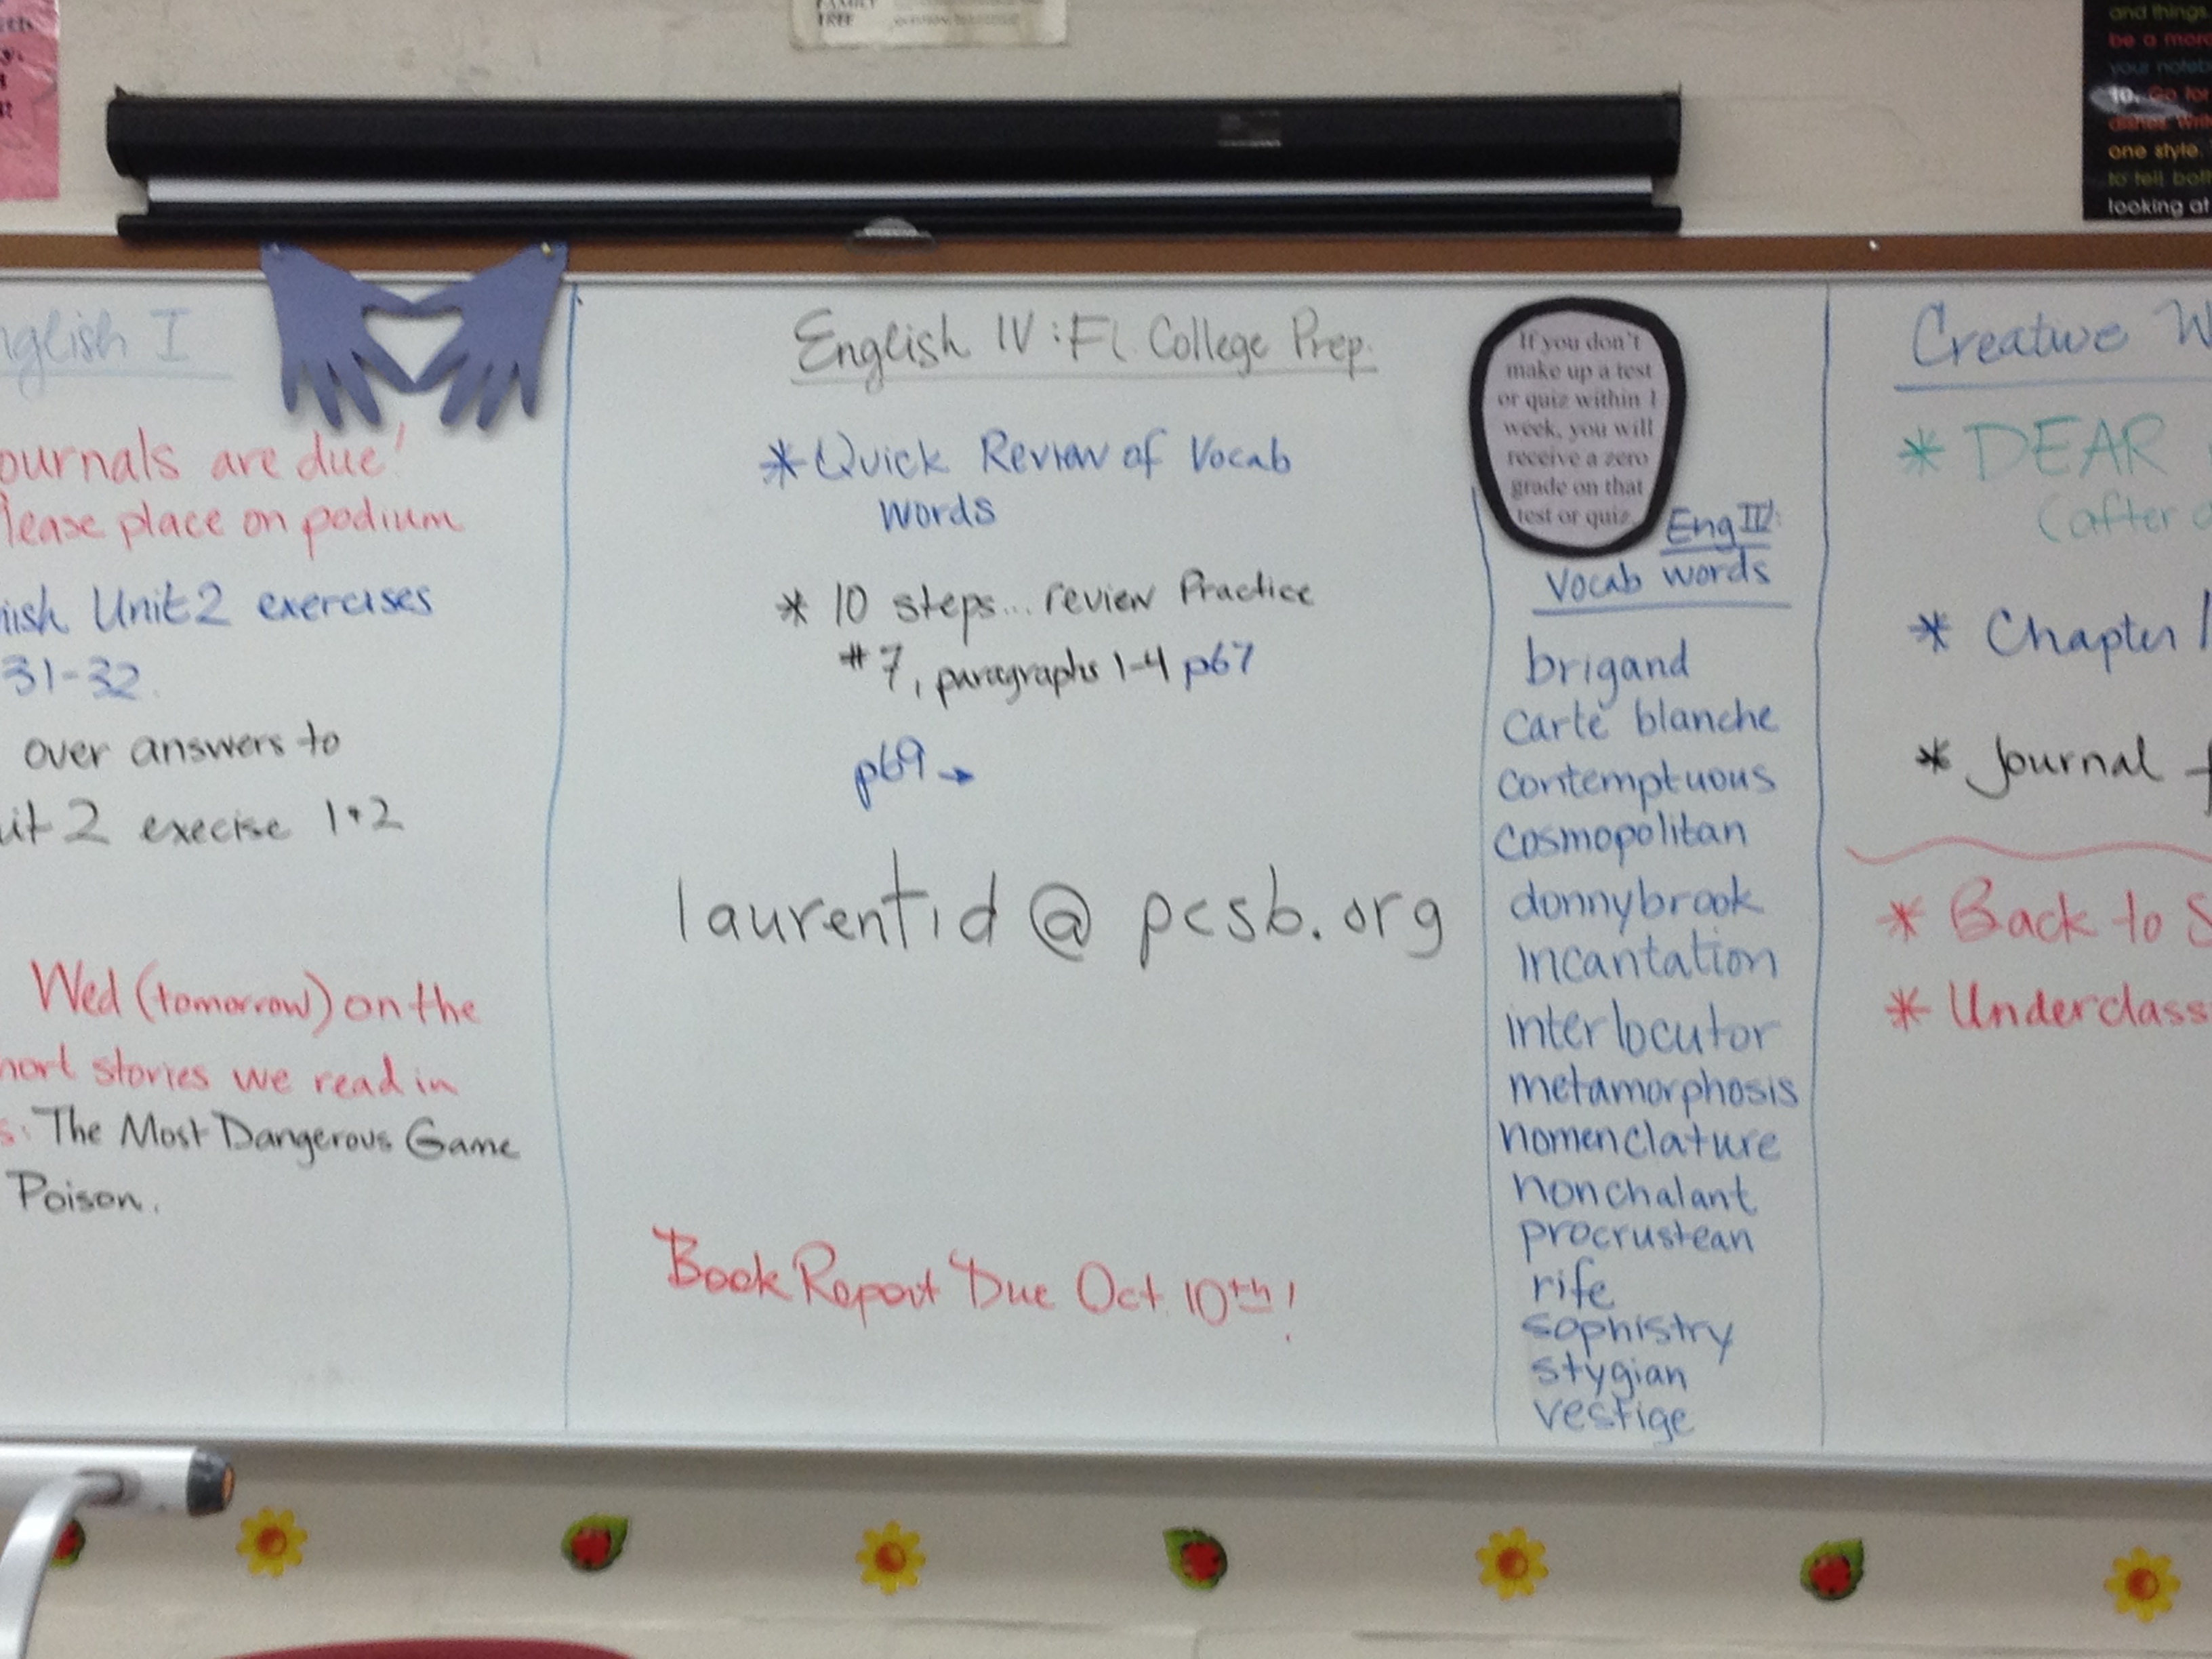 FAMILY
TREE
and things
be a more
your noteb
10. Go for
dishes. Write
one style.
to tell both
looking at
nglish I
ournals are due!
lease place on podium
nish Unit 2 exercises
31-32.
over answers to
it 2 execise 1+2
Wed (tomorrow) on the
hort stories we read in
s: The Most Dangerous Game
Poison.
English IV: Fl. College Prep.
* Quick Review of Vocab
words
* 10 steps... review Practice
#7, paragraphs 1-4 p67
p69 →
laurentid @ pcsb.org
Book Report Due Oct. 10th!
If you don't
make up a test
or quiz within 1
week, you will
receive a zero
grade on that
test or quiz.
Eng IV:
Vocab words
brigand
carte blanche
contemptuous
cosmopolitan
donnybrook
incantation
interlocutor
metamorphosis
nomenclature
nonchalant
procrustean
rife
sophistry
stygian
vestige
Creative W
* DEAR
(after
* Chapter 1
* Journal f
* Back to S
* Underclass